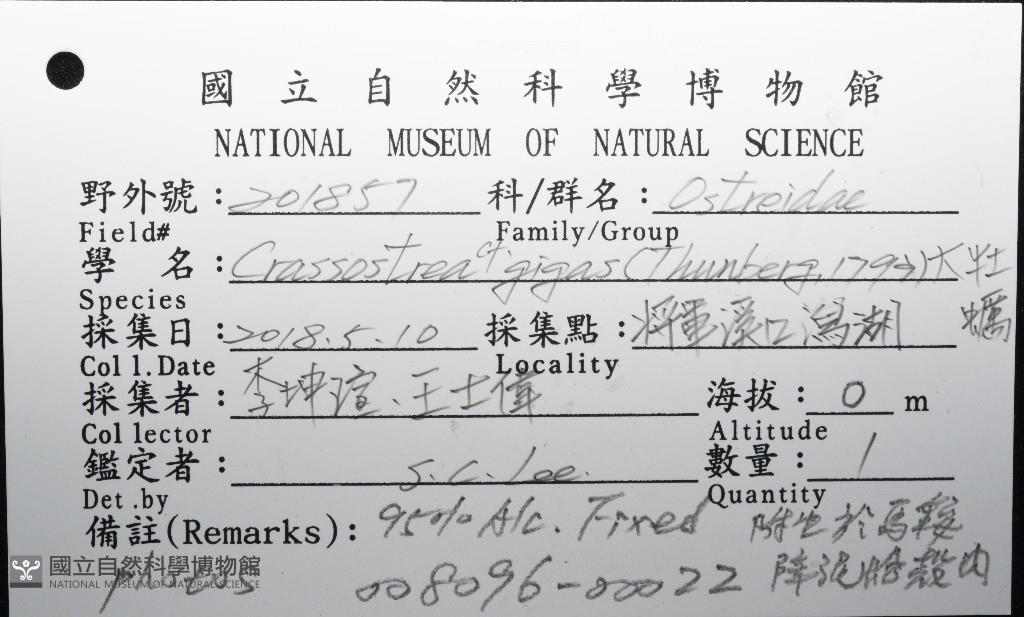 國立自然科學博物館
NATIONAL MUSEUM OF NATURAL SCIENCE
野外號：201857 科/群名：Ostreidae
Field# Family/Group
學 名：Crassostrea cf. gigas (Thunberg, 1793) 大牡蠣
Species
採集日：2018.5.10 採集點：將軍溪口潟湖
Coll.Date Locality
採集者：李坤瑄、王士偉 海拔：0 m
Collector Altitude
鑑定者：S.C. Lee. 數量：1
Det.by Quantity
備註(Remarks)：95% Alc. Fixed 附生於馬鞍
障泥蛤殼內
008096-00022
國立自然科學博物館
NATIONAL MUSEUM OF NATURAL SCIENCE